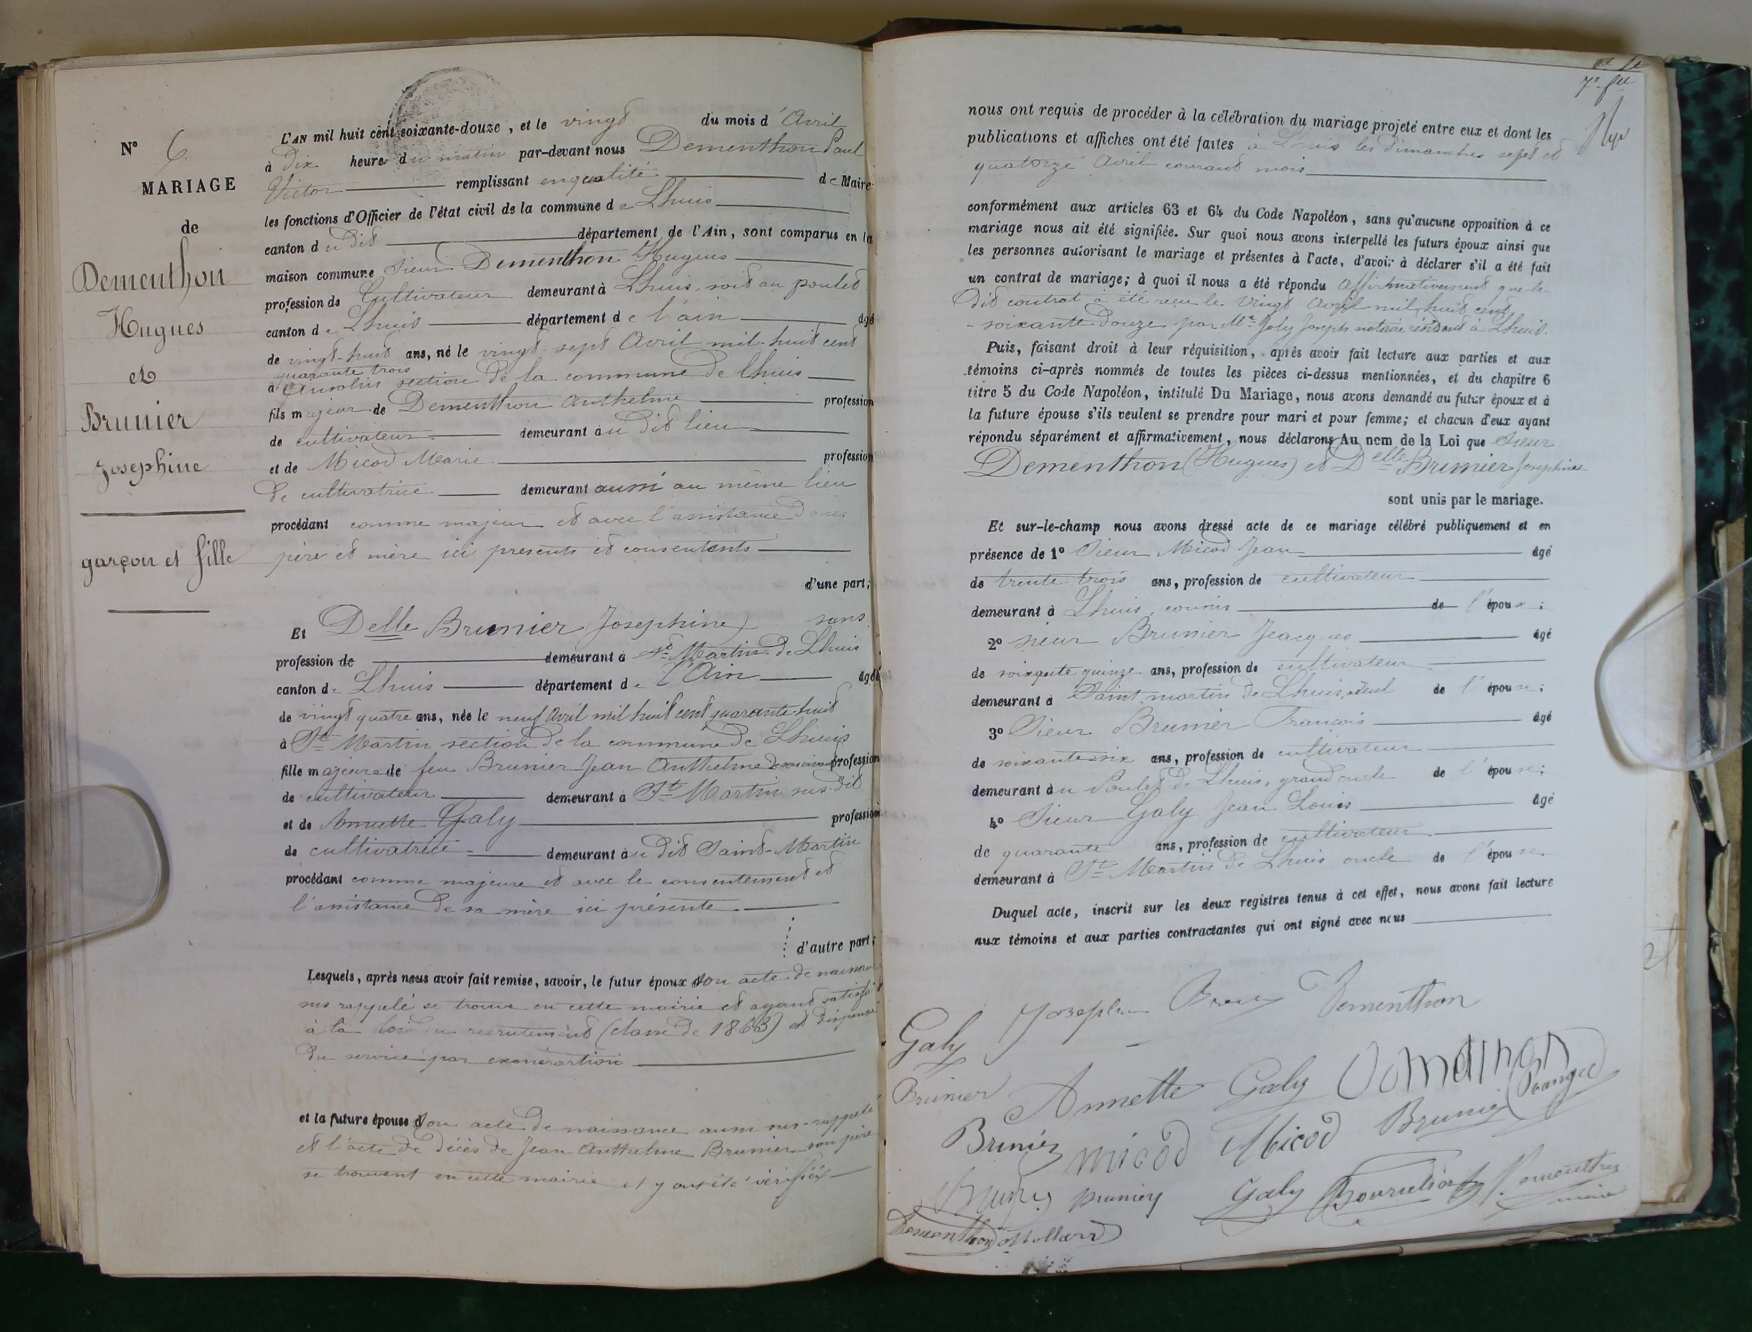 N° 6
MARIAGE
de
Dementhon
Hugues
et
Brunier
Josephine
garçon et fille
L'AN mil huit cent soixante-douze, et le vingt du mois d'Avril
à dix heure du matin par-devant nous Dementhon Paul
Victor remplissant en qualité de Maire
les fonctions d'Officier de l'état civil de la commune de Lhuis
canton du dit département de l'Ain, sont comparus en la
maison commune Sieur Dementhon Hugues
profession de Cultivateur demeurant à Lhuis, soit au poulet
canton de Lhuis département de l'ain âgé
de vingt-huit ans, né le vingt sept Avril mil-huit cent
quarante trois
à section de la commune de Lhuis
fils majeur de Dementhon Anthelme profession
de cultivateur demeurant au dit lieu
et de Micod Marie profession
de cultivatrice demeurant aussi au même lieu
procédant comme majeur et avec l'assistance de ses
père et mère ici présents et consentants
d'une part;
Et Delle Brunier Josephine, sans
profession de demeurant à St Martin de Lhuis
canton de Lhuis département de l'Ain âgée
de vingt quatre ans, née le neuf Avril mil huit cent quarante-huit
à St Martin section de la commune de Lhuis
fille majeure de feu Brunier Jean Anthelme profession
de cultivateur demeurant à St Martin sus-dit
et de Annette Galy profession
de cultivatrice demeurant au dit Saint-Martin
procédant comme majeure et avec le consentement et
l'assistance de sa mère ici présente
d'autre part;
Lesquels, après nous avoir fait remise, savoir, le futur époux son acte de naissance
sus rappelé se trouve en cette mairie et ayant satisfait
à la loi du recrutement (classe de 1863) et dispensé
du service par exonération
et la future épouse son acte de naissance aussi sus-rappelé
et l'acte de décès de Jean Anthelme Brunier son père
se trouvent en cette mairie et y ont été vérifiés
7e fet
nous ont requis de procéder à la célébration du mariage projeté entre eux et dont les
publications et affiches ont été faites à Lhuis les dimanches sept et
quatorze Avril courant mois
conformément aux articles 63 et 64 du Code Napoléon, sans qu'aucune opposition à ce
mariage nous ait été signifiée. Sur quoi nous avons interpellé les futurs époux ainsi que
les personnes autorisant le mariage et présentes à l'acte, d'avoir à déclarer s'il a été fait
un contrat de mariage; à quoi il nous a été répondu affirmativement que le
dit contrat a été reçu le vingt Avril mil huit cent
soixante douze par Me Galy Joseph notaire résidant à Lhuis.
Puis, faisant droit à leur réquisition, après avoir fait lecture aux parties et aux
témoins ci-après nommés de toutes les pièces ci-dessus mentionnées, et du chapitre 6
titre 5 du Code Napoléon, intitulé Du Mariage, nous avons demandé au futur époux et à
la future épouse s'ils veulent se prendre pour mari et pour femme; et chacun d'eux ayant
répondu séparément et affirmativement, nous déclarons Au nom de la Loi que Sieur
Dementhon (Hugues) et Delle Brunier Josephine
sont unis par le mariage.
Et sur-le-champ nous avons dressé acte de ce mariage célébré publiquement et en
présence de 1° Sieur Micod Jean âgé
de trente trois ans, profession de cultivateur
demeurant à Lhuis, cousin de l'époux;
2° sieur Brunier Jacques âgé
de soixante quinze ans, profession de cultivateur
demeurant à Saint martin de Lhuis, aïeul de l'épouse;
3° Sieur Brunier François âgé
de soixante six ans, profession de cultivateur
demeurant au Poulet de Lhuis, grand oncle de l'épouse;
4° Sieur Galy Jean Louis âgé
de quarante ans, profession de cultivateur
demeurant à St Martin de Lhuis oncle de l'épouse
Duquel acte, inscrit sur les deux registres tenus à cet effet, nous avons fait lecture
aux témoins et aux parties contractantes qui ont signé avec nous
Josephine Dementhon
Galy
Brunier Annette Galy
Brunier micod Micod Brunier
Galy
Dementhon
maire